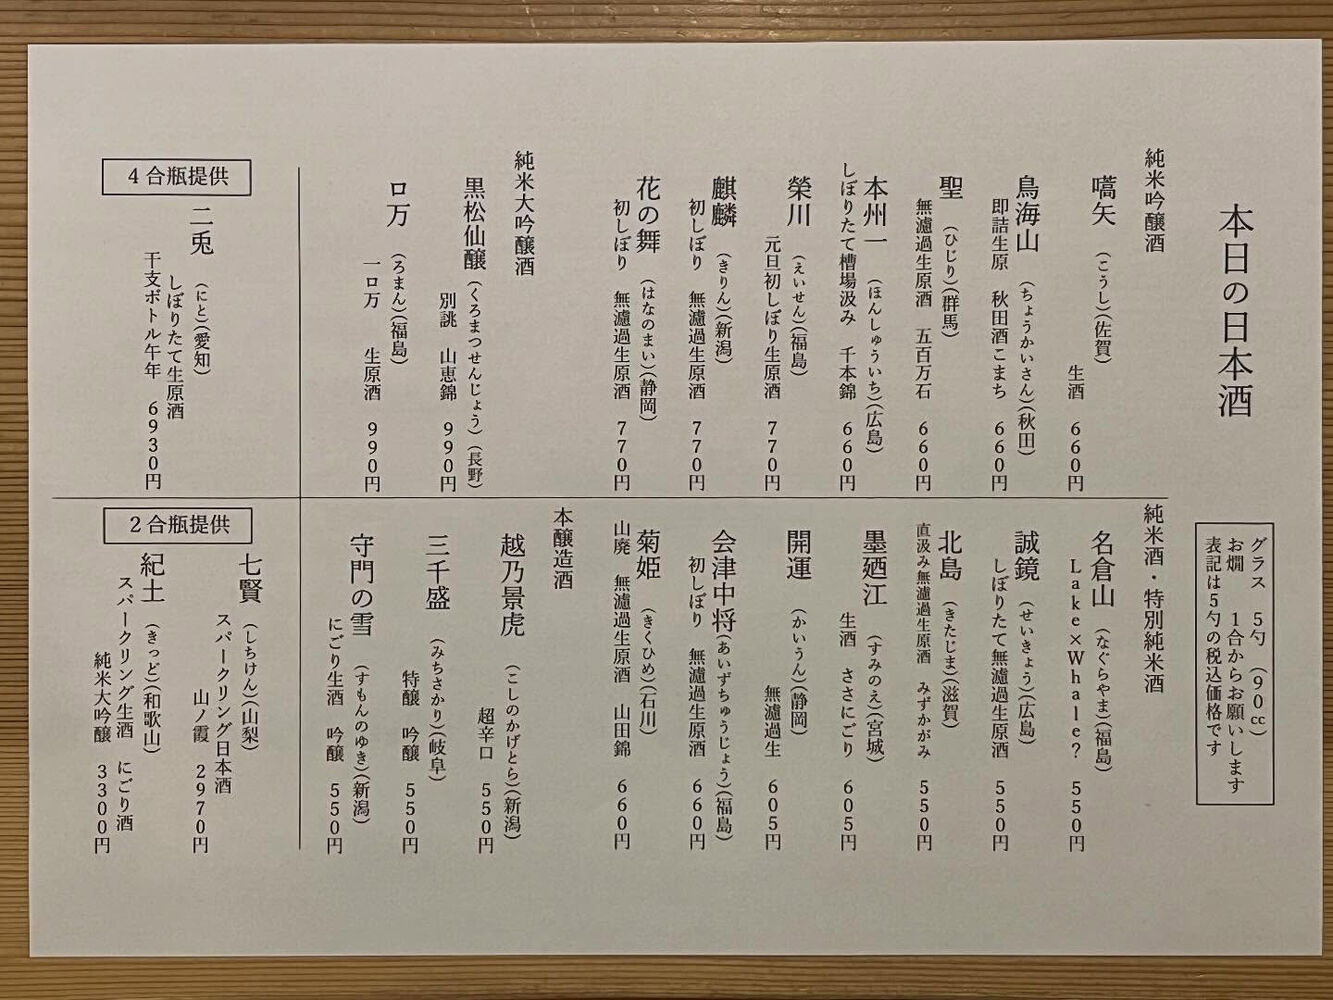 本日の日本酒
グラス 5勺 (90㏄)
お燗 1合からお願いします
表記は5勺の税込価格です
純米吟醸酒
嚆矢 (こうし)(佐賀)
生酒 660円
鳥海山 (ちょうかいさん)(秋田)
即詰生原 秋田酒こまち 660円
聖 (ひじり)(群馬)
無濾過生原酒 五百万石 660円
本州一 (ほんしゅういち)(広島)
しぼりたて槽場汲み 千本錦 660円
榮川 (えいせん)(福島)
元旦初しぼり生原酒 770円
麒麟 (きりん)(新潟)
初しぼり 無濾過生原酒 770円
花の舞 (はなのまい)(静岡)
初しぼり 無濾過生原酒 770円
純米大吟醸酒
黒松仙醸 (くろまつせんじょう)(長野)
別誂 山恵錦 990円
ロ万 (ろまん)(福島)
一ロ万 生原酒 990円
純米酒・特別純米酒
名倉山 (なぐらやま)(福島)
Lake×Whale? 550円
誠鏡 (せいきょう)(広島)
しぼりたて無濾過生原酒 550円
北島 (きたじま)(滋賀)
直汲み無濾過生原酒 みずかがみ 550円
墨廼江 (すみのえ)(宮城)
生酒 ささにごり 605円
開運 (かいうん)(静岡)
無濾過生 605円
会津中将 (あいずちゅうじょう)(福島)
初しぼり 無濾過生原酒 660円
菊姫 (きくひめ)(石川)
山廃 無濾過生原酒 山田錦 660円
本醸造酒
越乃景虎 (こしのかげとら)(新潟)
超辛口 550円
三千盛 (みちさかり)(岐阜)
特醸 吟醸 550円
守門の雪 (すもんのゆき)(新潟)
にごり生酒 吟醸 550円
4合瓶提供
二兎 (にと)(愛知)
しぼりたて生原酒
干支ボトル午年 6930円
2合瓶提供
七賢 (しちけん)(山梨)
スパークリング日本酒
山ノ霞 2970円
紀土 (きっど)(和歌山)
スパークリング生酒 にごり酒
純米大吟醸 3300円